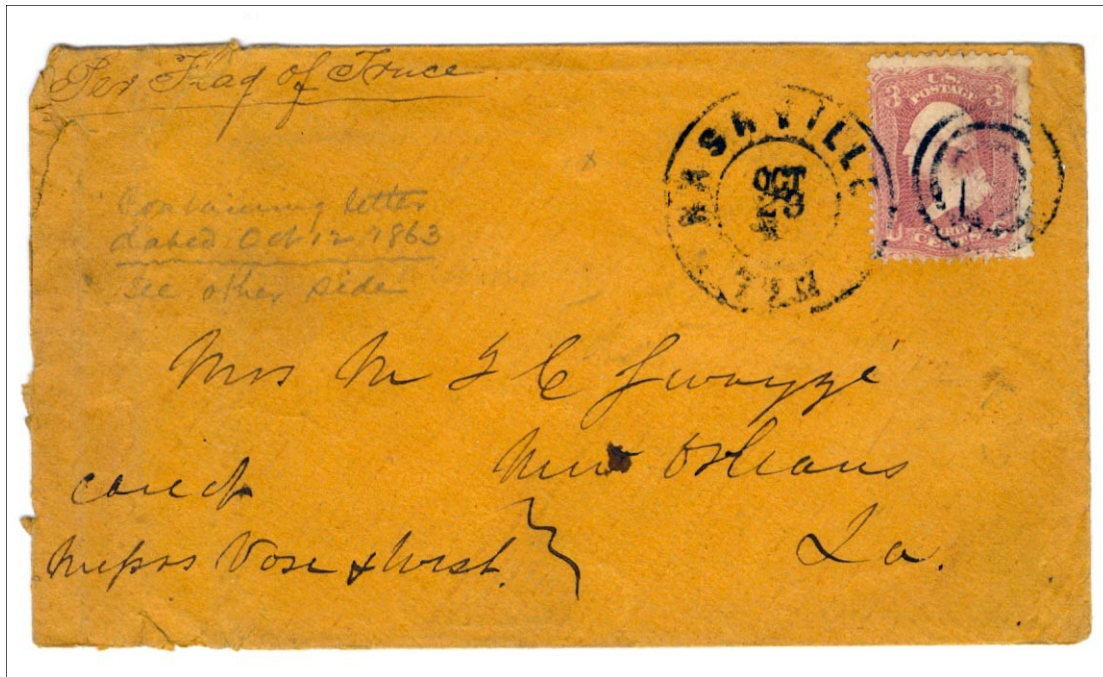 Per Flag of Truce
Containing letter
dated Oct 12 1863
see other side
NASHVILLE
OCT
23
TEN
U.S.
POSTAGE
3 3
CENTS
Mrs M J C Swayzé
New Orleans
La.
care of
Messrs Vose & West.